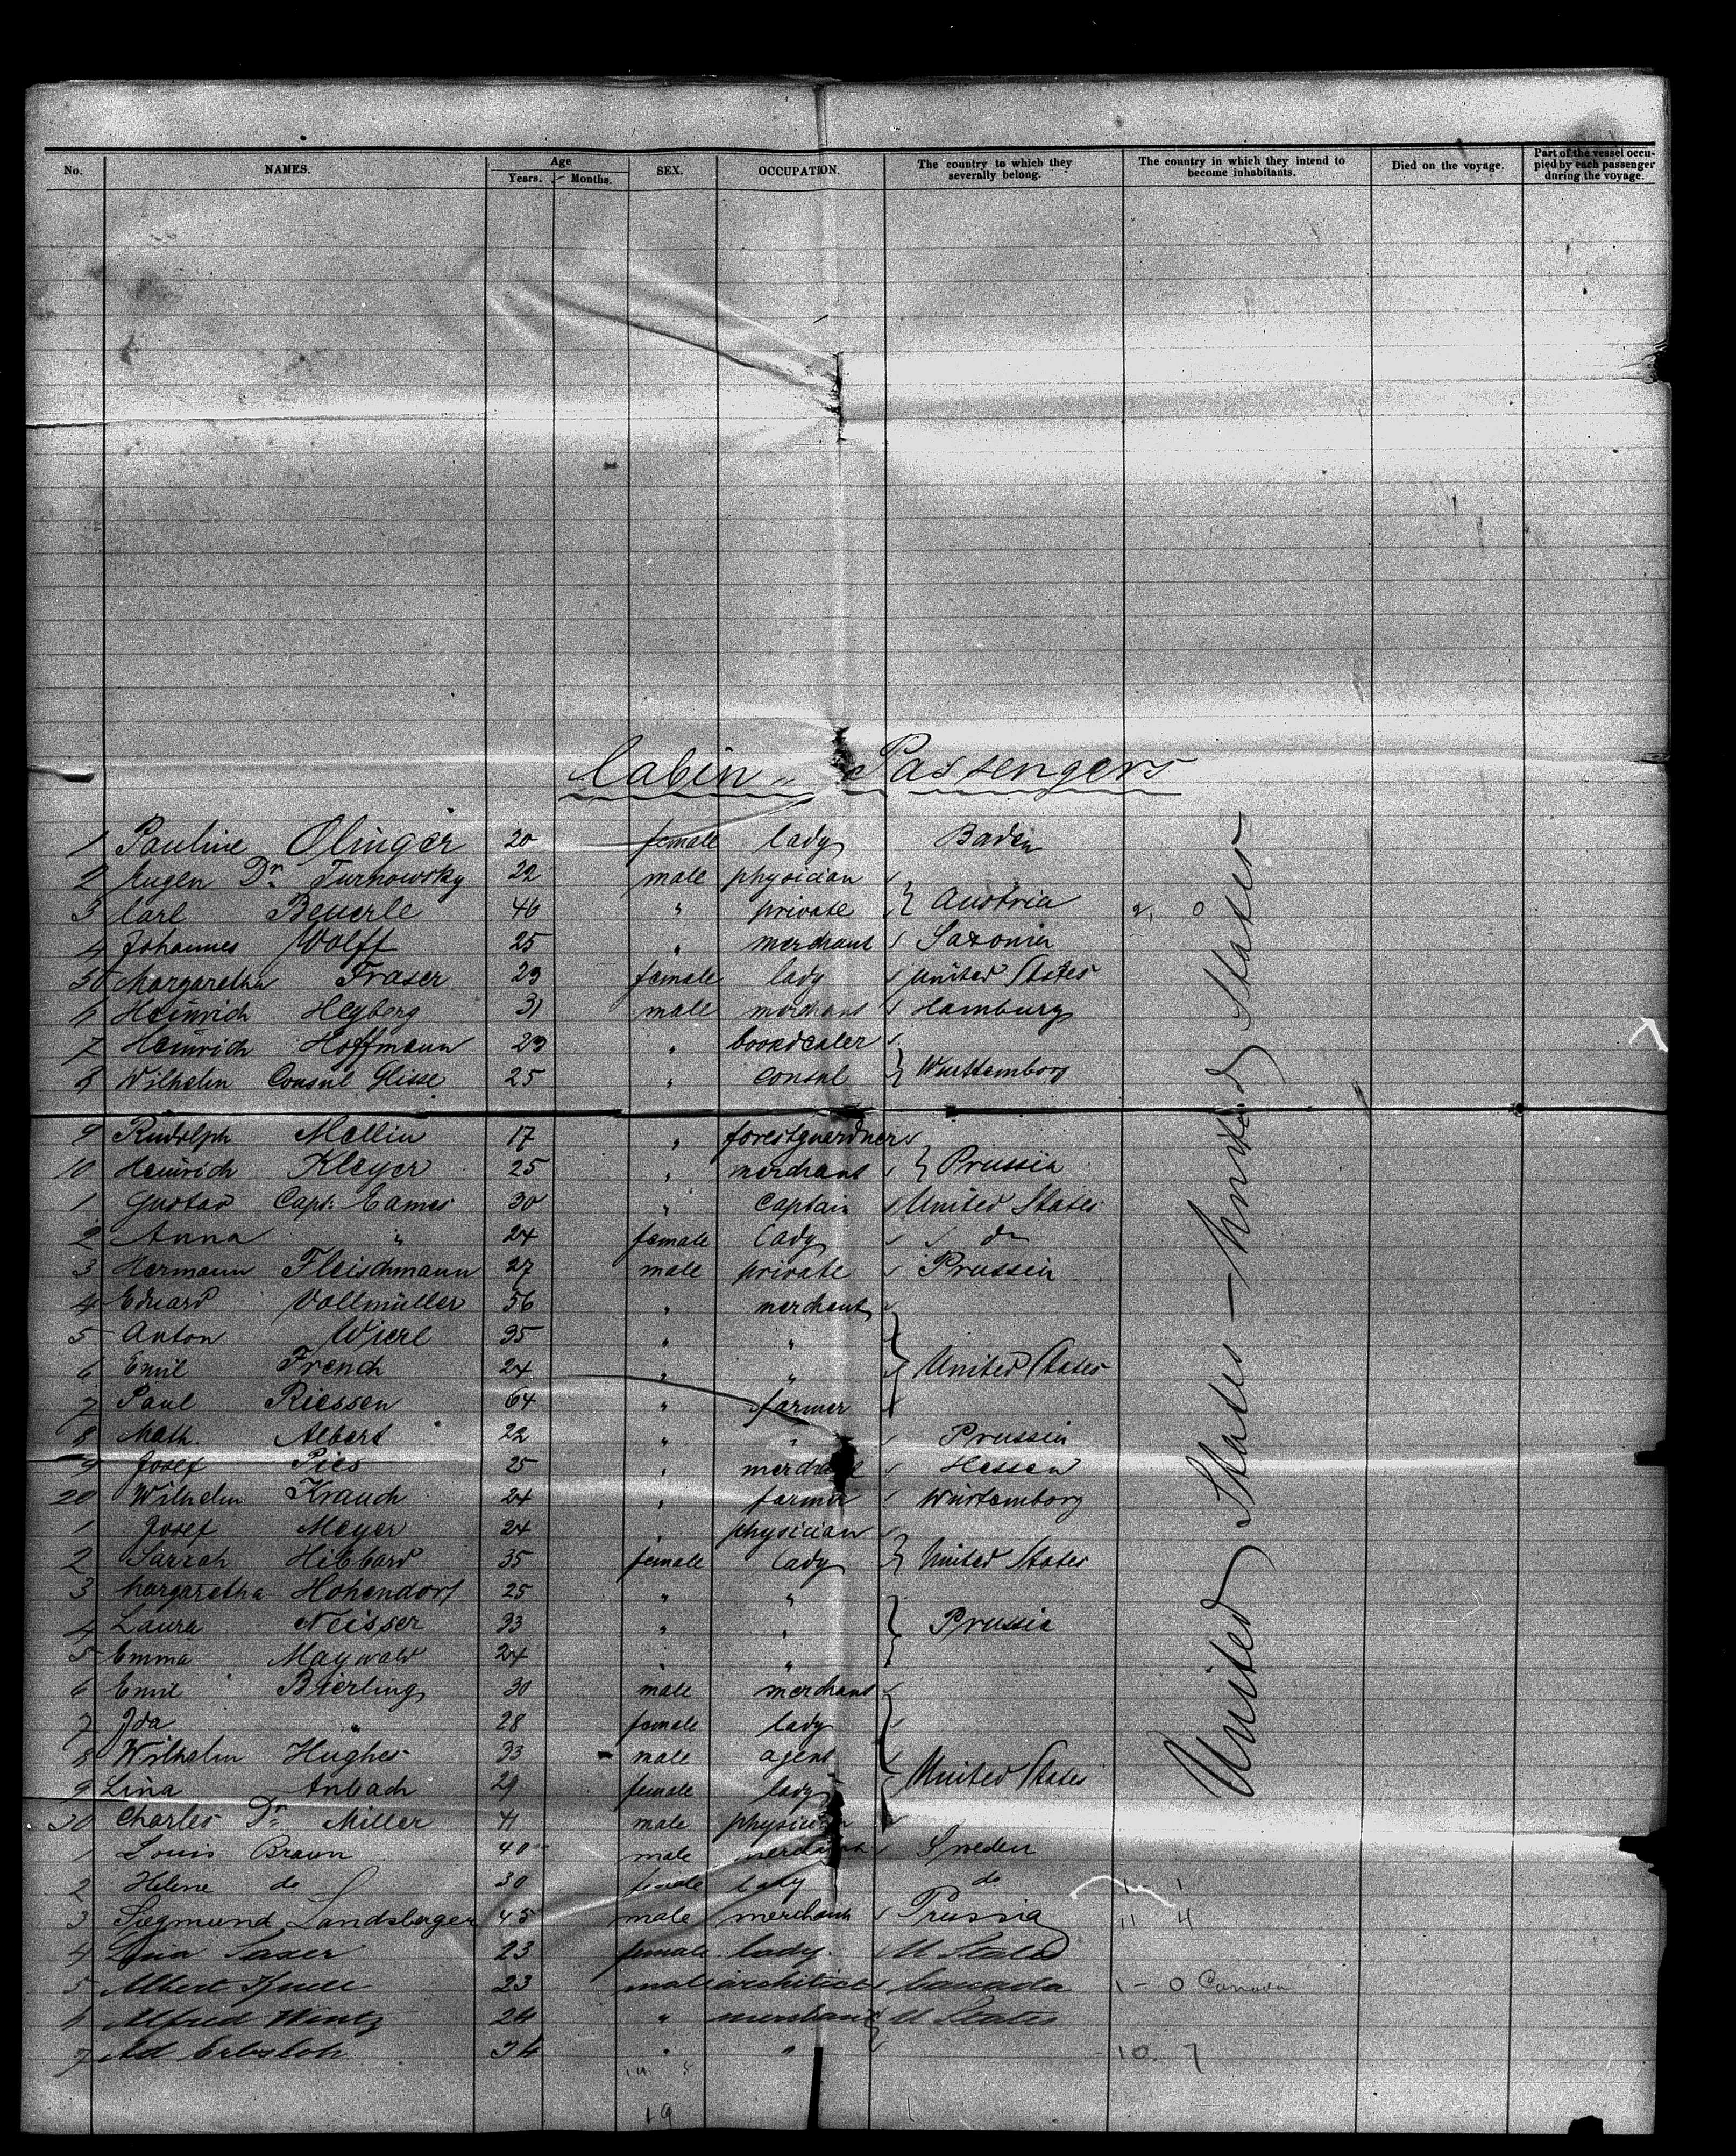 No. NAMES. Age Years. Months. SEX. OCCUPATION. The country to which they severally belong. The country in which they intend to become inhabitants. Died on the voyage. Part of the vessel occupied by each passenger during the voyage.
Cabin Passengers
1 Pauline Olinger 20 female lady Baden
2 Eugen Dr. Turnowsky 22 male physician
3 Carl Beuerle 46 " private } Austria 2. 0
4 Johannes Wolff 25 " merchant Saxonia
5 Margaretha Fraser 23 female lady United States
6 Heinrich Heyberg 31 male merchant Hamburg
7 Heinrich Hoffmann 29 " bookdealer
8 Wilhelm Consul Glisse 25 " consul } Wurttemberg
9 Rudolph Mellin 17 " forestguardner
10 Heinrich Kleyer 25 " merchant } Prussia
1 Gustav Capt. Eames 30 " Captain United States
2 Anna " 24 female lady do
3 Hermann Fleischmann 27 male private Prussia
4 Eduard Vollmüller 56 " merchant
5 Anton Wierl 35 " "
6 Emil French 24 " " } United States
7 Paul Riessen 64 " farmer
8 Math. Albert 22 " " Prussia
9 Josef Pies 25 " merchant Hessen
20 Wilhelm Krauch 24 " farmer Würtemberg
1 Josef Meyer 24 " physician
2 Sarrah Hibbard 35 female lady } United States
3 Margaretha Hohendorf 25 " "
4 Laura Neisser 33 " " } Prussia
5 Emma Maywald 24 " "
6 Emil Bierling 30 male merchant
7 Ida " 28 female lady
8 Wilhelm Hughes 33 male agent
9 Lina Anbach 29 female lady } United States
30 Charles Dr. Miller 41 male physician
1 Louis Braun 40 male merchant Sweden
2 Helene do 30 female lady do 1 - 1
3 Siegmund Landsberger 45 male merchant Prussia 11 4
4 Lina Saxer 23 female lady U States
5 Albert Knell 23 male architect Canada 1 - 0 Canada
6 Alfred Wentz 24 " merchant U States
7 Ad Erbsloh 34 " " 10. 7
19
United States - United States